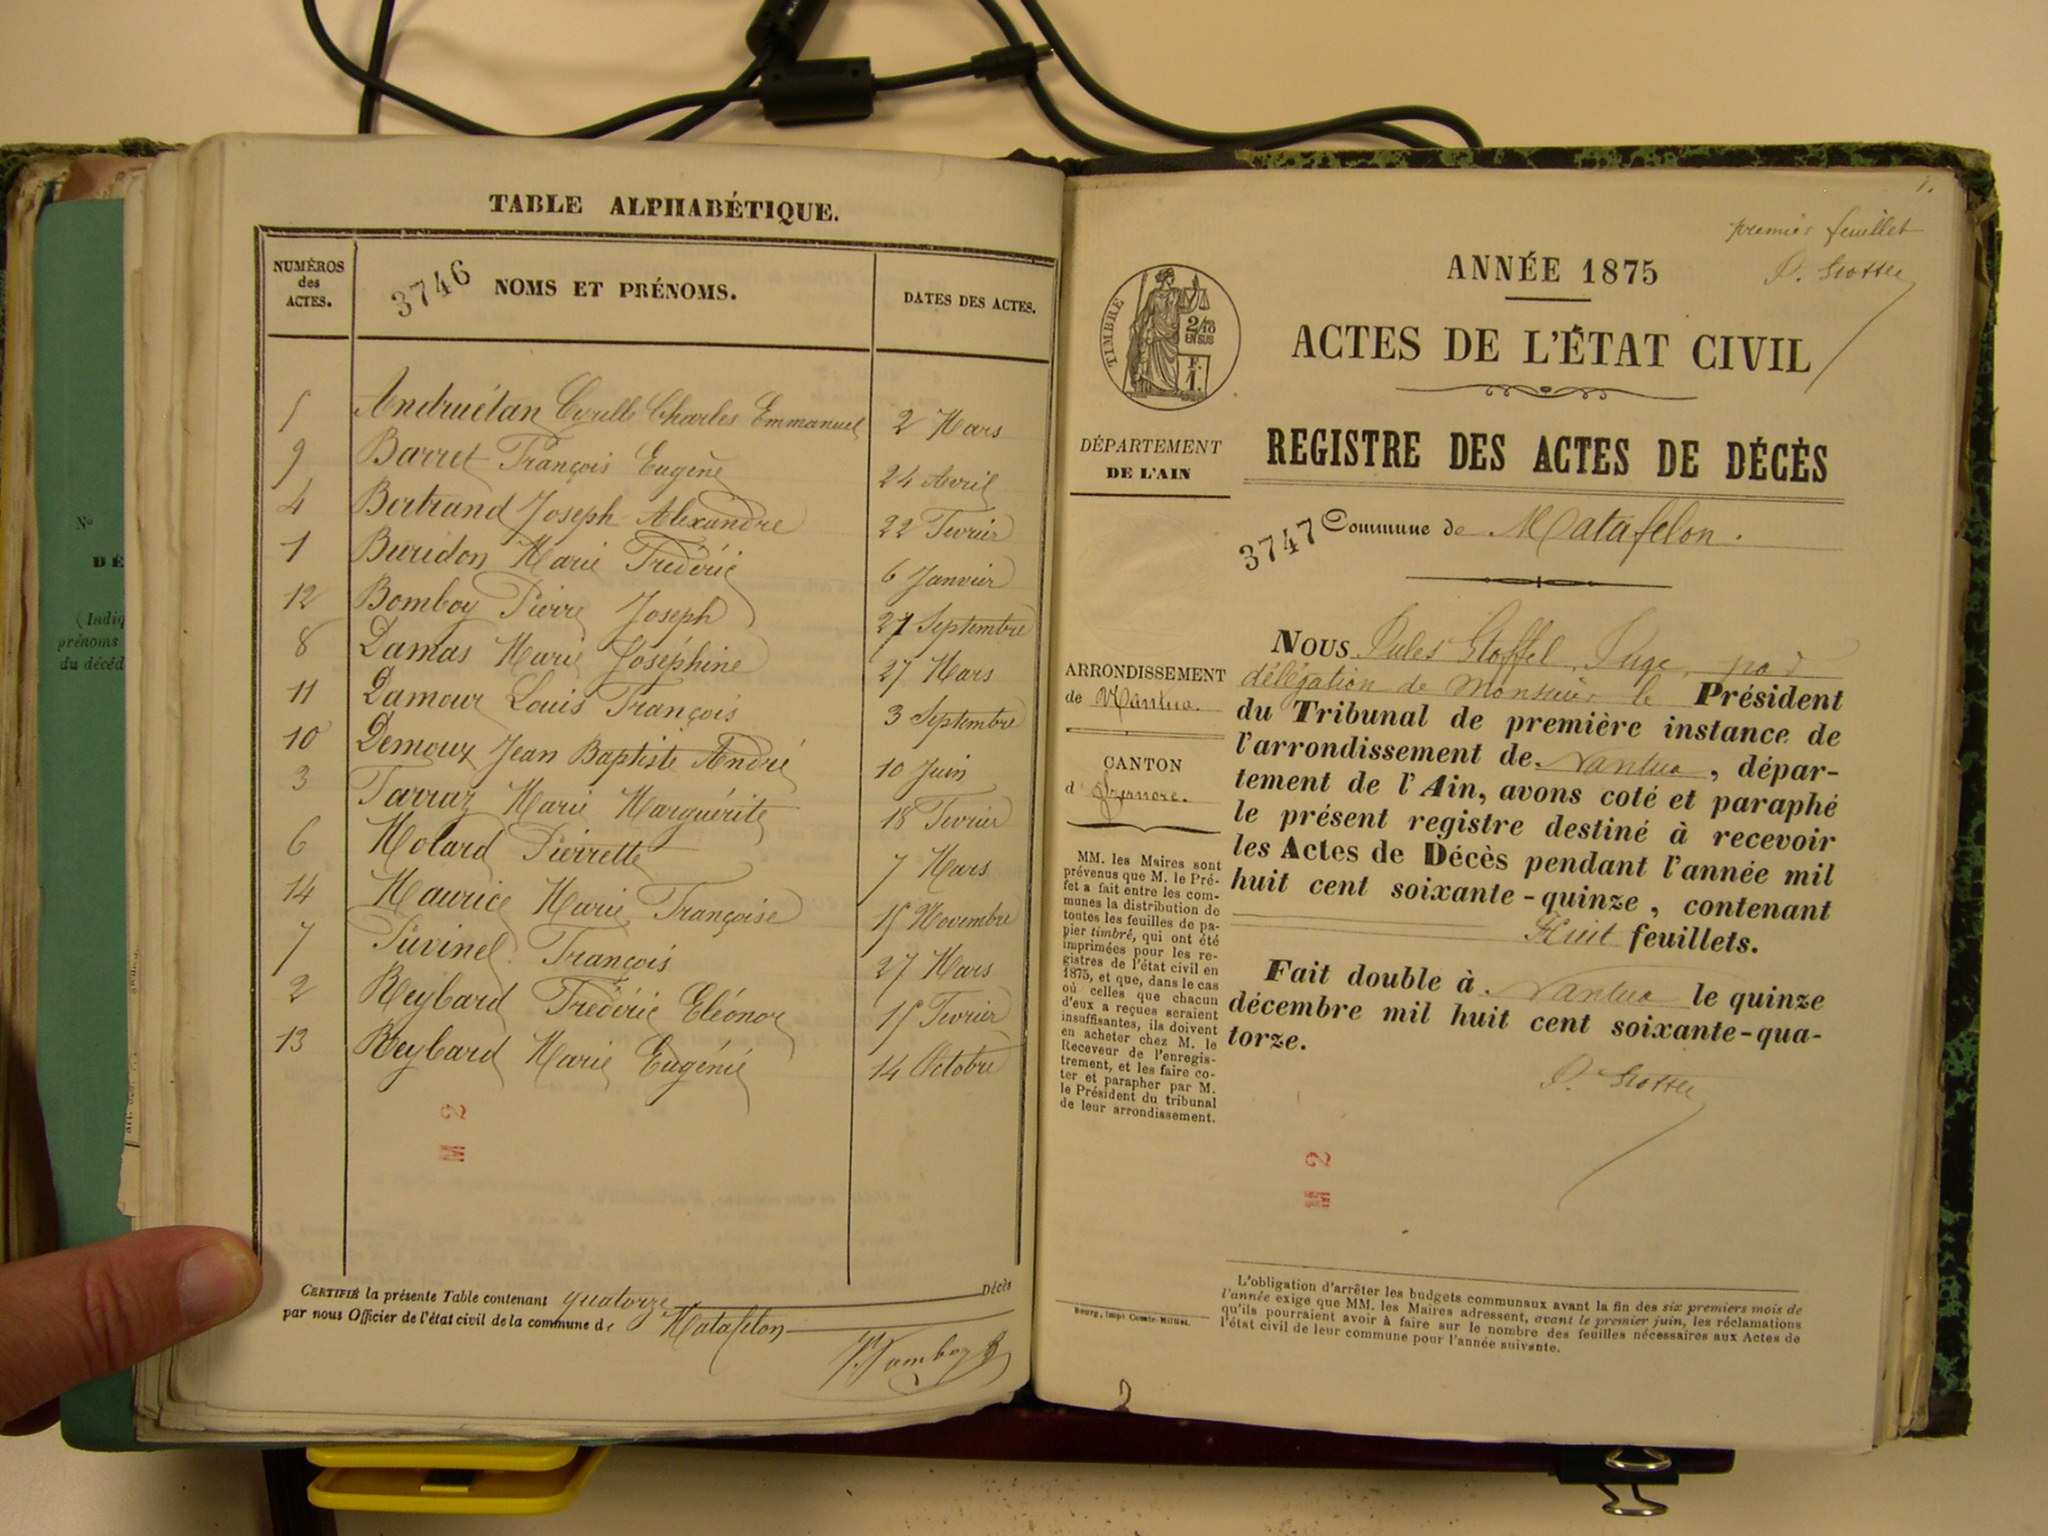 TABLE ALPHABÉTIQUE.
NUMÉROS
des
ACTES.
3746
NOMS ET PRÉNOMS.
DATES DES ACTES.
5 Andruétan Cyrille Charles Emmanuel 2 Mars
9 Barret François Eugène 24 Avril
4 Bertrand Joseph Alexandre 22 Fevrier
1 Buridon Marie Fréderic 6 Janvier
12 Bomboy Pierre Joseph 27 Septembre
8 Damas Marie Joséphine 27 Mars
11 Damour Louis François 3 Septembre
10 Demoux Jean Baptiste André 10 Juin
3 Farraz Marie Marguérite 18 Fevrier
6 Molard Pierrette 7 Mars
14 Maurice Marie Françoise 15 Novembre
7 Puvinel François 27 Mars
2 Reybard Fréderic Eléonor 15 Fevrier
13 Reybard Marie Eugénie 14 Octobre
M 2
CERTIFIÉ la présente Table contenant quatorze Décès
par nous Officier de l'état civil de la commune de Matafelon
Nº
DÉ
(Indiq
prénoms
du décéd
1.
premier feuillet
ANNÉE 1875
ACTES DE L'ÉTAT CIVIL
TIMBRE
2/10
EN SUS
F.
1.
DÉPARTEMENT
DE L'AIN
REGISTRE DES ACTES DE DÉCÈS
3747
Commune de Matafelon.
ARRONDISSEMENT
de Nantua.
CANTON
d'Izernore.
MM. les Maires sont
prévenus que M. le Pré-
fet a fait entre les com-
munes la distribution de
toutes les feuilles de pa-
pier timbré, qui ont été
imprimées pour les re-
gistres de l'état civil en
1875, et que, dans le cas
où celles que chacun
d'eux a reçues seraient
insuffisantes, ils doivent
en acheter chez M. le
Receveur de l'enregis-
trement, et les faire co-
ter et parapher par M.
le Président du tribunal
de leur arrondissement.
NOUS Jules Stoffel, Juge, par
délégation de Monsieur le Président
du Tribunal de première instance de
l'arrondissement de Nantua, dépar-
tement de l'Ain, avons coté et paraphé
le présent registre destiné à recevoir
les Actes de Décès pendant l'année mil
huit cent soixante-quinze, contenant
Huit feuillets.
Fait double à Nantua le quinze
décembre mil huit cent soixante-qua-
torze.
M 2
L'obligation d'arrêter les budgets communaux avant la fin des six premiers mois de
l'année exige que MM. les Maires adressent, avant le premier juin, les réclamations
qu'ils pourraient avoir à faire sur le nombre des feuilles nécessaires aux Actes de
l'état civil de leur commune pour l'année suivante.